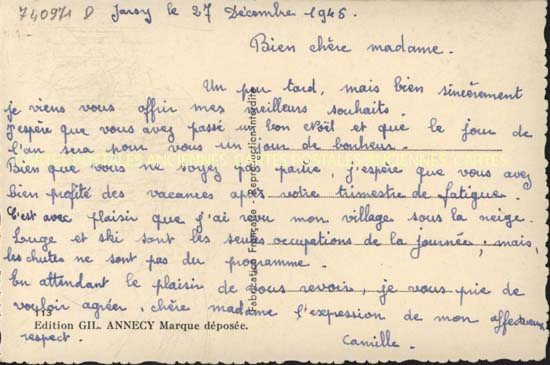 740971 D Jarsy le 27 Décembre 1946.
Bien chère madame.
Un peu tard, mais bien sincèrement
je viens vous offrir mes meilleurs souhaits.
J'espère que vous avez passé un bon Noël et que le jour de
l'an sera pour vous un jour de bonheur.
Bien que vous ne soyez pas partie, j'espère que vous avez
bien profité des vacances après votre trimestre de fatigue.
C'est avec plaisir que j'ai revu mon village sous la neige.
Luge et ski sont les seules occupations de la journée, mais,
les chutes ne sont pas du programme.
En attendant le plaisir de vous revoir, je vous prie de
vouloir agréer, chère madame l'expression de mon affectueux
113
Edition GIL. ANNECY Marque déposée.
respect.
Camille.
Fabrication Française - Reproduction interdite